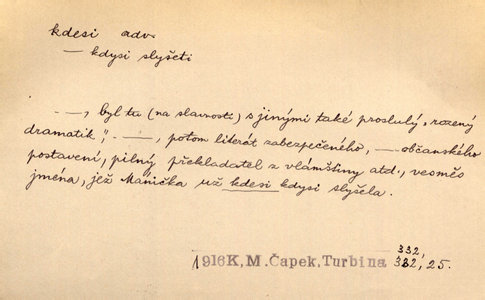 kdesi adv.
— kdysi slyšeti
– –, byl tu (na slavnosti) s jinými také proslulý „rozený
dramatik", – —, potom literát zabezpečeného, — občanského
postavení, pilný překladatel z vlámštiny atd., vesměs
jména, jež Manička už kdesi kdysi slyšela.
332,
1916 K. M. Čapek, Turbina 382, 25.